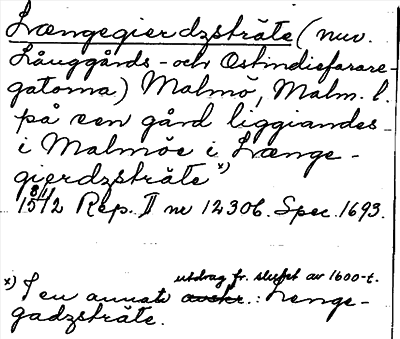 Længegierdzsträte (nuv.
Långgårds- och Ostindiefarare-
gatorna) Malmö, Malm. l.
på een gård liggiandes
i Malmöe i Længe-
gierdzsträte x)
8/1 1512 Rep. II nr 12306. Spec. 1693.
x) I en annan utdrag fr. slutet av 1600-t. avskr.: Lenge-
gadzsträte.